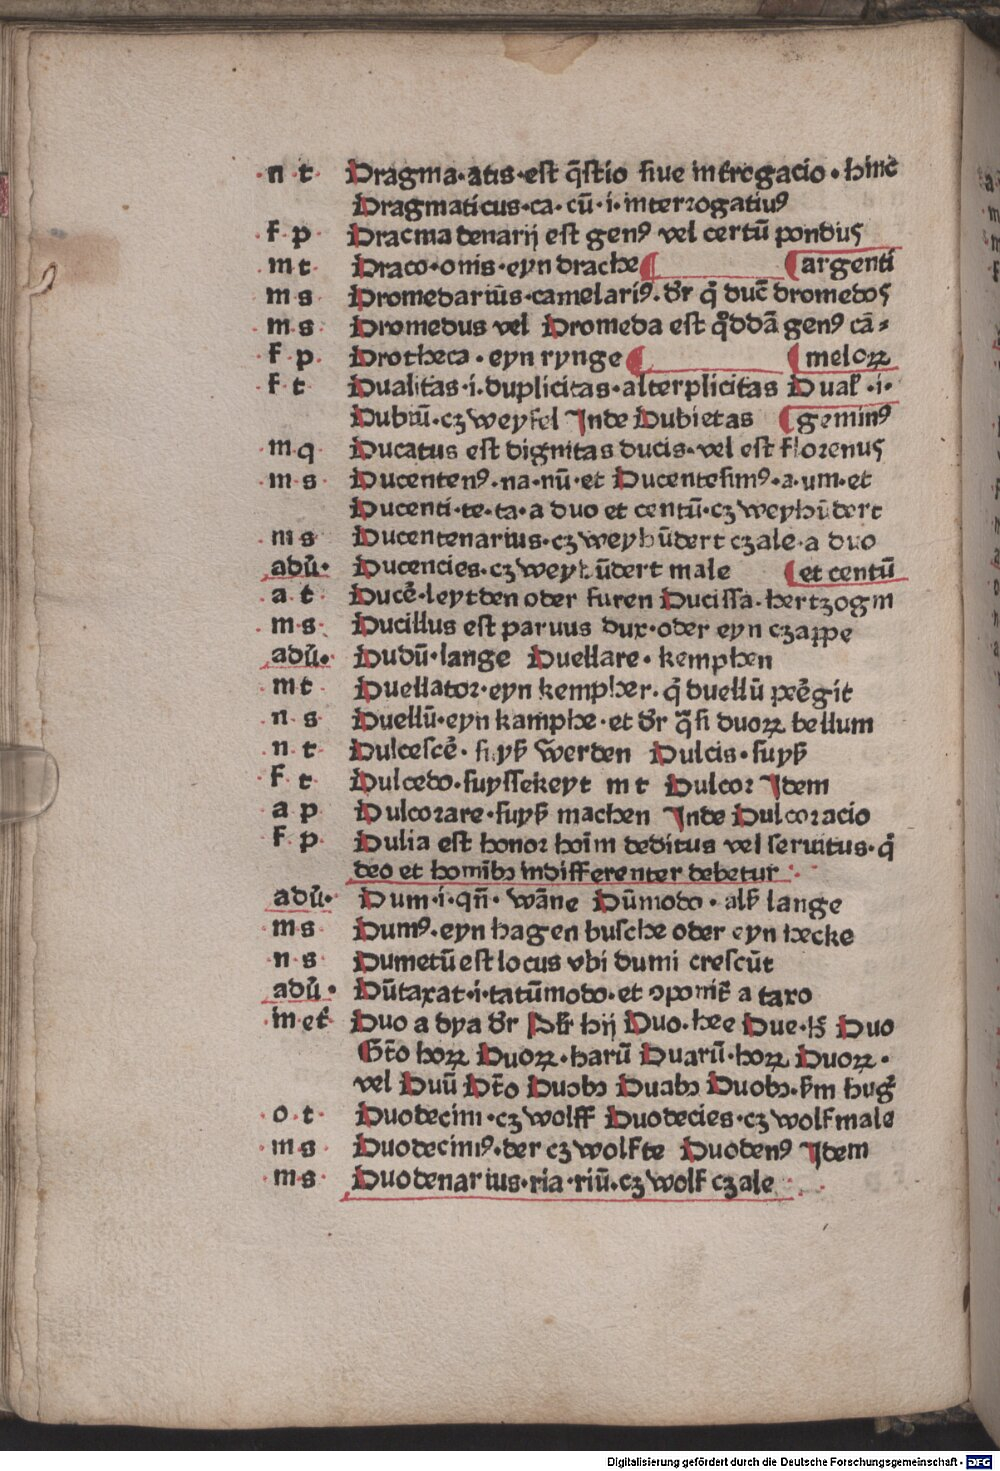 n t Dragma·atis·est q̄stio siue interogacio·hinc̄
Dragmaticus·ca·cū·i·interrogatiuꝰ
f p Dracma denarij est genꝰ vel certū pondus
m t Draco·onis·eyn drache ¶ ¶ argenti
m s Dromedariūs·camelariꝰ·dr̄ q̄ duc̄ dromedos
m s Dromedus vel Dromeda est q̄ddā genꝰ cā⸗
f p Drotheca·eyn rynge ¶ ¶ meloꝝ
f t Dualitas·i·duplicitas·alterplicitas Dual̓·i·
Dubiū·czweyfel Inde Dubietas ¶ geminꝰ
m q Ducatus est dignitas ducis·vel est florenus
m s Ducentenꝰ·na·nū·et Ducentesimꝰ·a·um·et
Ducenti·te·ta·a duo et centū·czweyhūdert
m s Ducentenarius·czweyhūdert czale·a duo
adū· Ducencies·czweyhūdert male ¶ et centū
a t Ducē·leytden oder furen Ducissa·hertzogin
m s Ducillus est paruus dux·oder eyn czappe
adū· Dudū·lange Duellare·kemphen
m t Duellator·eyn kempher·q̄ duellū ꝑēgit
n s Duellū·eyn kamphe·et dr̄ q̄si duoꝝ bellum
n t Dulcescē·suyß werden Dulcis·suyß
f t Dulcedo·suyssekeyt m t Dulcor Idem
a p Dulcorare·suyß machen Inde Dulcoracio
f p Dulia est honor hoīm deditus vel seruitus·q̄
deo et homībꝫ indifferenter debetur
adū· Dum·i·qn̄·wāne Dūmodo·alß lange
m s Dumꝰ·eyn hagen busche oder eyn hecke
n s Dumetū est locus vbi dumi crescūt
adū· Dūtaxat·i·tatūmodo·et ɔponit̄ a taxo
in et̄ Duo a dya dr̄ Pl̓r hij Duo·hee Due·hꝫ Duo
Gt̄o hoꝝ Duoꝝ·harū Duarū·hoꝝ Duoꝝ·
vel Duū Dt̄o Duobꝫ Duabꝫ Duobꝫ·ẜm hug̓
o t Duodecim·czwolff Duodecies·czwolfmale
m s Duodecimꝰ·der czwolfte Duodenꝰ Idem
m s Duodenarius·ria·riū·czwolf czale
Digitalisierung gefördert durch die Deutsche Forschungsgemeinschaft - DFG